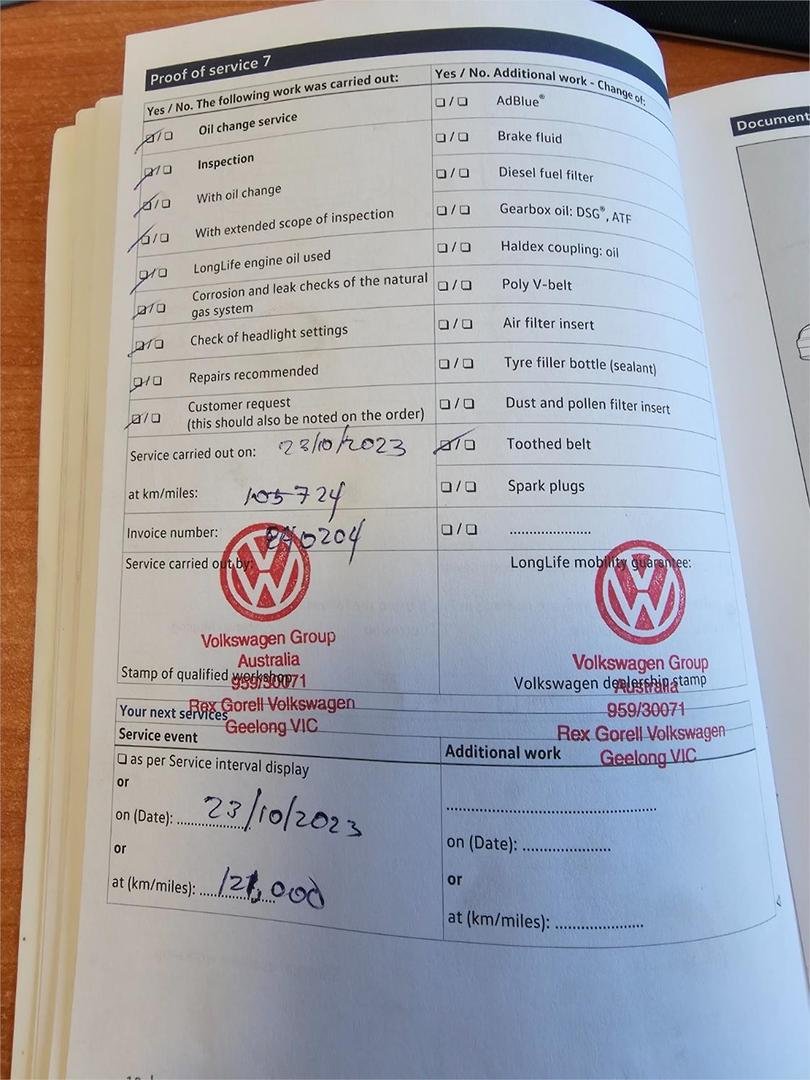 Proof of service 7
Document
Yes / No. The following work was carried out:
Oil change service
Inspection
With oil change
With extended scope of inspection
LongLife engine oil used
Corrosion and leak checks of the natural
gas system
Check of headlight settings
Repairs recommended
Customer request
(this should also be noted on the order)
Service carried out on: 23/10/2023
at km/miles: 105724
Invoice number:
Service carried out by:
Volkswagen Group
Australia
959/30071
Stamp of qualified workshop
Rex Gorell Volkswagen
Geelong VIC
Yes / No. Additional work - Change of:
AdBlue®
Brake fluid
Diesel fuel filter
Gearbox oil: DSG®, ATF
Haldex coupling: oil
Poly V-belt
Air filter insert
Tyre filler bottle (sealant)
Dust and pollen filter insert
Toothed belt
Spark plugs
....................
LongLife mobility guarantee:
Volkswagen Group
Australia
Volkswagen dealership stamp
959/30071
Rex Gorell Volkswagen
Geelong VIC
Your next services
Service event
as per Service interval display
or
on (Date): 23/10/2023
or
at (km/miles): 121,000
Additional work
on (Date): ....................
or
at (km/miles): ....................